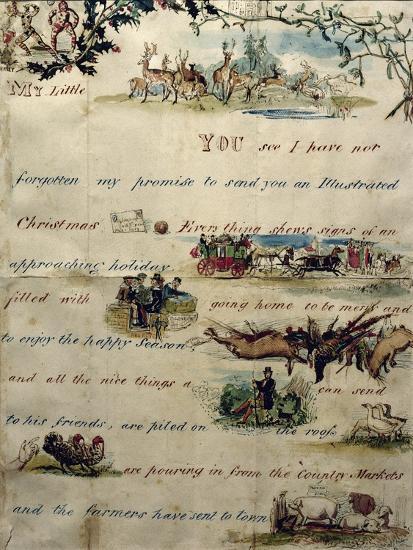 My Little
YOU see I have not
forgotten my promise to send you an Illustrated
Christmas Every thing shews signs of an
approaching holiday
filled with going home to be merry and
to enjoy the happy Season,
and all the nice things a can send
to his friends, are piled on the roofs
are pouring in from the Country Markets
and the farmers have sent to town